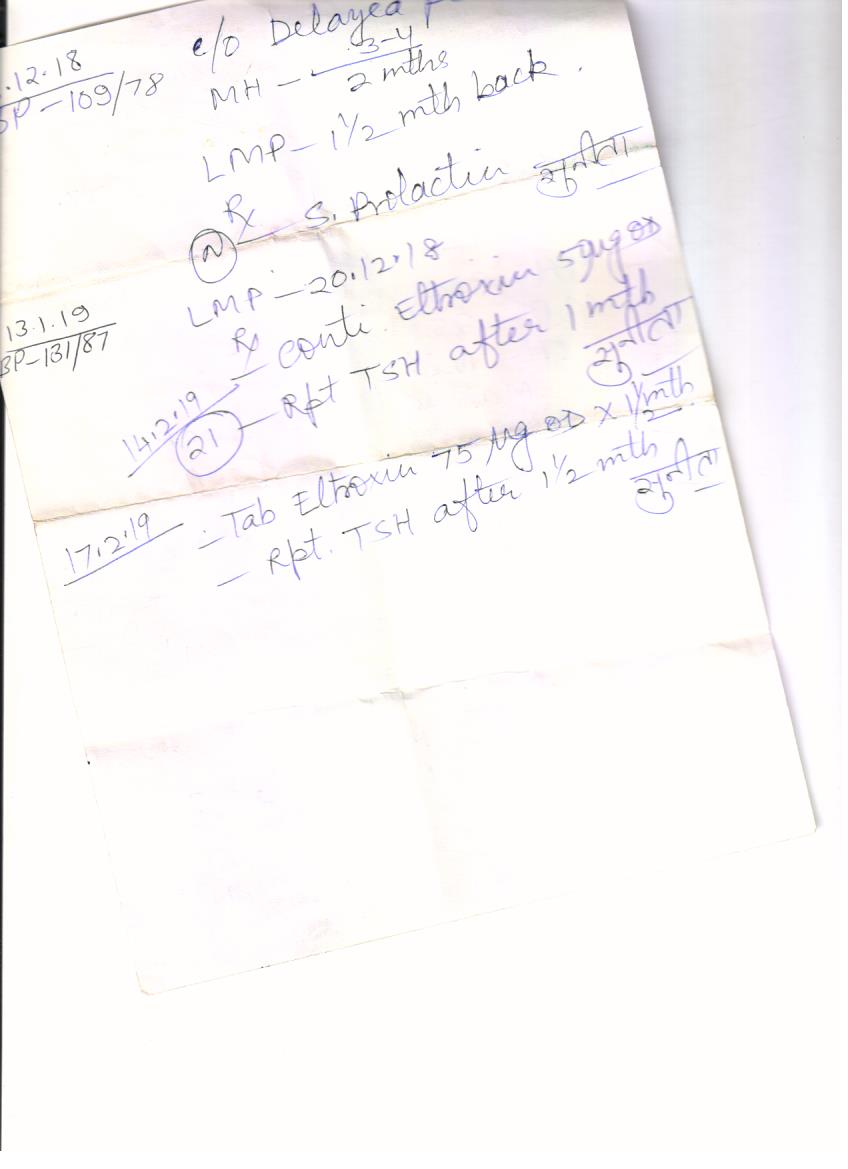 .12.18
BP-109/78
c/o Delayed
MH - 3-4 / 2 mths
LMP - 1 1/2 mth back.
Rx
N - S. Prolactin सुनीता
13.1.19
BP-131/87
LMP - 20.12.18
Rx
- conti. Eltroxin 50µg OD
14.2.19
21 - Rpt TSH after 1 mth सुनीता
17.2.19 - Tab Eltroxin 75 µg OD x 1 1/2 mth
- Rpt. TSH after 1 1/2 mth सुनीता